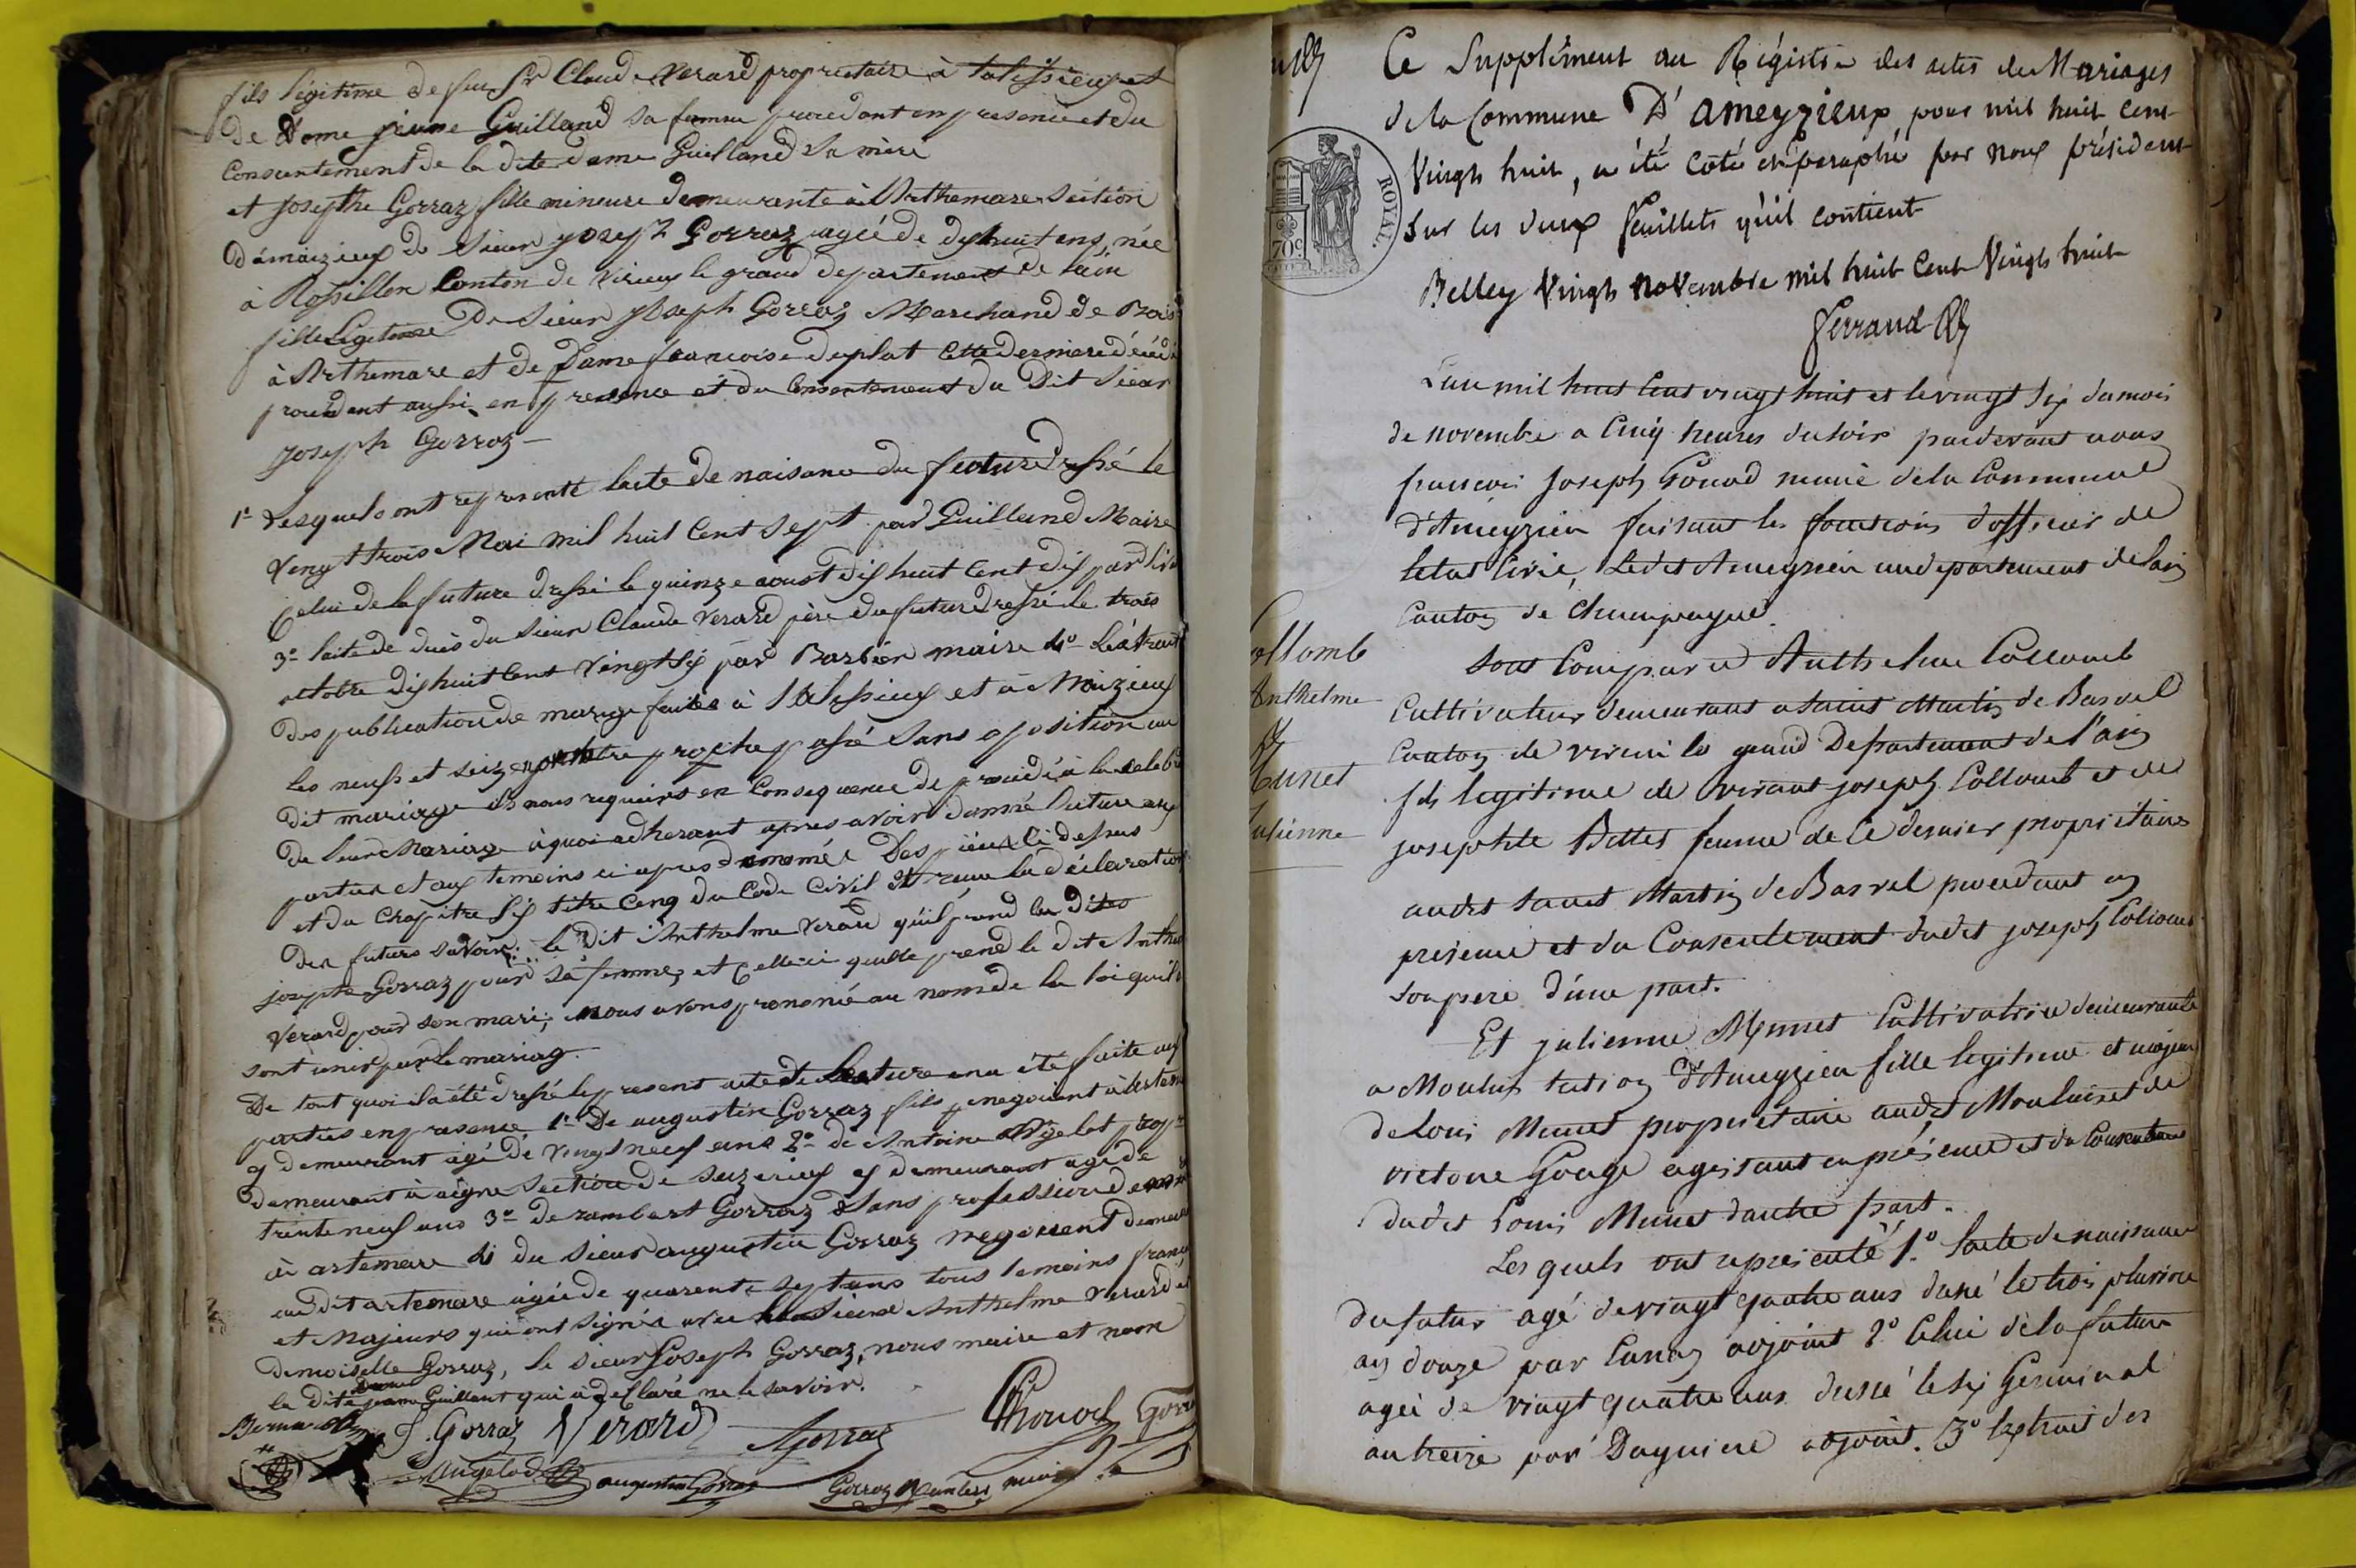 fils légitime de feu Sr Claude Verard propriétaire à talissieux et
de dame jeanne Guilland sa femme procedant en presence et du
consentement de la dite dame Guilland sa mère
et josepthe Gorraz fille mineure demeurante à Arthemare séction
d'amaizieux de Sieur joseph Gorraz agée de dix huit ens, née
à Rossillon Canton de virieux le grand departement de l'ain
fille Legitime De Sieur joseph Gorraz Marchand de Bois
à Arthemare et de Dame francoise duplat Cette derniere décédé
procedent aussi en presence et du Consentement du Dit Sieur
joseph Gorraz
1° Lesquels ont représenté lacte de naisance du future dressé le
Vengt trois Mai mil huit Cent sept par Guilland Maire
Celui de la future dressé le quinze aoust dix huit Cent dix par
3° lacte de ducès du Sieur Claude Verard père du future dressé le trois
octobre dix huit Cent Vingt six par Barbier maire 4° L'extrait
des publication de mariage faites à talissieux et à Maizieux
les neuf et seize novembre proche passé sans oposition au
dit mariage ils nous requirent en Consequence de procédé à la celebr
de leur Mariage à quoi adherant apres avoir donné lecture aux
parties et aux temoins ci apres dénomés Des pièces ci dessus
et du chapitre six titre Cenq du Code Civil et recu la déclaration
des futurs savoir: le dit Anthelme Verard qu'il prend la dite
josepte Gorraz pour sa femme, et Celle-ci quelle prend le dit Anthel
Verard pour son mari; nous avons prononcé au nom de la loi quils
sont unis par le mariag.
De tout quoi il a été dressé le present acte dt lecture en a été faite aux
parties en presence 1° De augustin Gorraz fils negociant à artem
y demeurant agé de Vengt neuf ans 2° de Antoine Angelot propr
demeurant à aigne section de suzerieux y demeurant agé de
trente neuf ans 3° de rambert Gorraz sans profession demeu
à artemare 4 du sieur augustin Gorraz negocient demeur
au dit artemare agée de quarente sept ans tous temoins franc
et Majeurs qui ont signés avec le Sieur Anthelme Verard et
demoiselle Gorraz, le sieur Joseph Gorraz, nous maire et non
la dite Dame jeanne Guillant qui a déclaré ne le savoir.
J. Gorraz Verard Gorraz Gonod Gorr
Angelod augustin Gorraz Gorraz Rambert maire
Ce Supplément au Régistre des actes de Mariages
de la Commune D'ameyzieux pour mil huit cent
Vingt huit, a été Coté et paraphé par nous président
Sur les deux feuillets qu'il contient
Belley Vingt novembre mil huit Cent Vingt huit
ROYAL.
70c
Ferrand
L'an mil huit Cent vingt huit et le vingt six du mois
de novembre a Cinq heures du soir pardevant nous
francois Joseph Gonod maire de la Commune
d'Ameyzieu faisant les fonctions d'officier de
letat Civil, Ledit Ameyzieu au departement de lain
Canton de Champagne.
Sont Comparu Anthelme Collomb
Cultivateur demeurant a Saint Martin de Bavel
Canton de virieu le grand Departement de l'ain
fils legitime de vivant joseph Collomb et de
josephte Bettes femme de ce dernier propriétaire
audit Saint Martin de Bavel procedant en
presence et du Consentement dudit joseph Collomb
son pere d'une part.
ollomb
Anthelme
&
Munet
ulienne
Et julienne Munet Cultivatrice demeurante
a Moulin section d'Ameyzieu fille legitime et majeur
de Louis Munet propriétaire audit Moulin et de
victoire Gouge agissant en présence et du Consentement
dudit Louis Munet dautre part.
Les quels ont representé 1° l'acte de naissance
du futur agé de vingt quatre ans dressé le trois pluviose
an douze par Cunaz adjoint 2° Celui de la future
agée de vingt quatre ans dressé le six Germinal
an treize par Daguiere adjoint. 3° Lextrait des